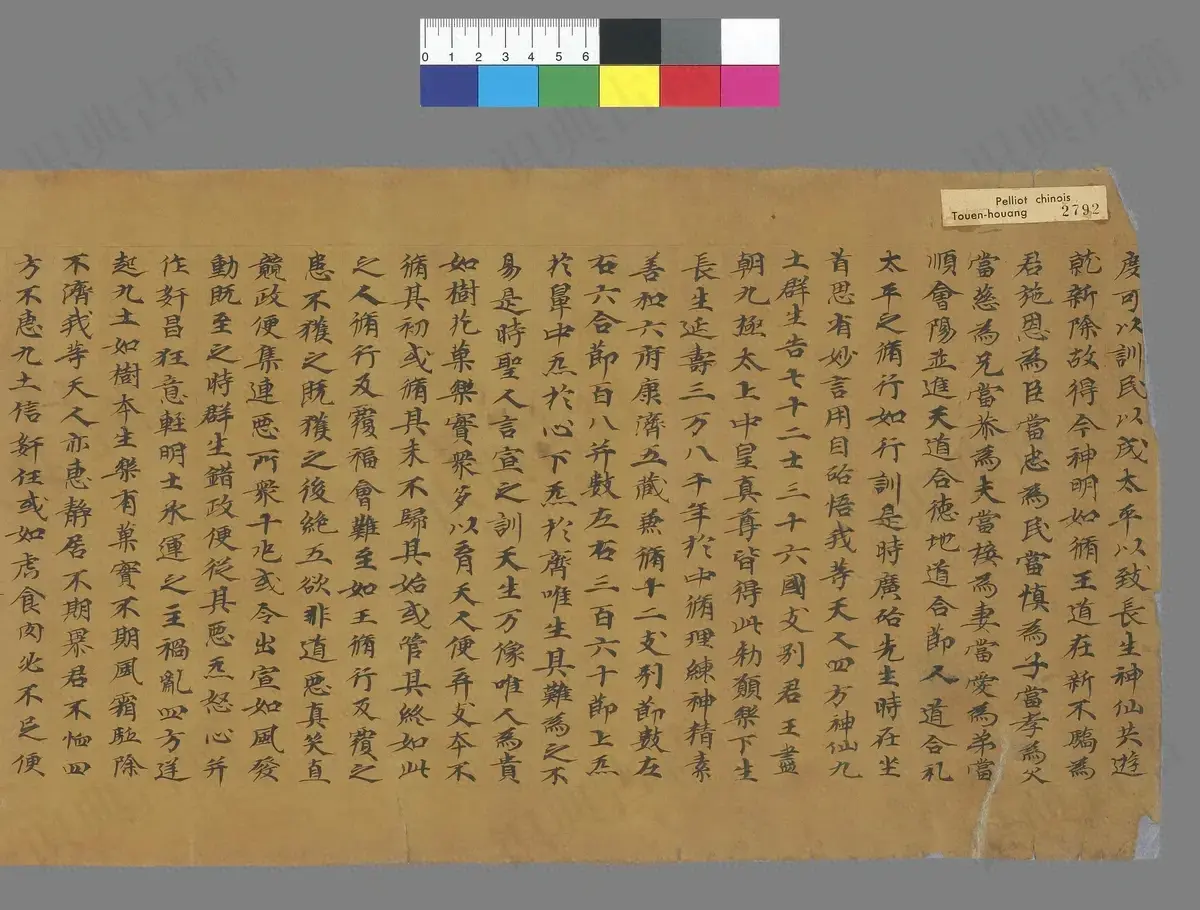 0 1 2 3 4 5 6
Pelliot chinois
Touen-houang 2792
度可以訓民以成太平以致長生神仙共遊
就新除故得令神明如循王道在新不驕為
君施恩為臣當忠為民當慎為子當孝為父
當慈為兄當恭為夫當接為妻當愛為弟當
順會陽並進天道合德地道合節人道合礼
太平之循行如行訓是時廣治先生時在坐
首思有妙言用自啓悟我等天人四方神仙九
土群生告七十二士三十六國支別君王盡
朝九極太上中皇真尊皆得此勑願樂下生
長生延壽三万八千年於中循理練神精素
善和六府康濟五藏兼循十二支別節數左
右六合節百八并數左右三百六十節上炁
於鼻中炁於心下炁於齊唯生具難為之不
易是時聖人言宣之訓天生万像唯人為貴
如樹花菓樂實衆多以育天人便弃支本不
循其初或循其末不歸具始或管其終如此
之人循行及覆福會難至如王循行及覆之
患不獲之既獲之後絶五欲非道惡真笑直
競政便集連惡所衆十疋或令出宣如風發
動既至之時群生錯政便從其惡炁怒心并
作奸昌狂意輕明士永運之主禍亂四方送
起九土如樹本生樂有菓實不期風霜駈除
不濟我等天人亦患靜居不期暴君不恤四
方不惠九土信奸任或如虎食肉必不足便
識典古籍